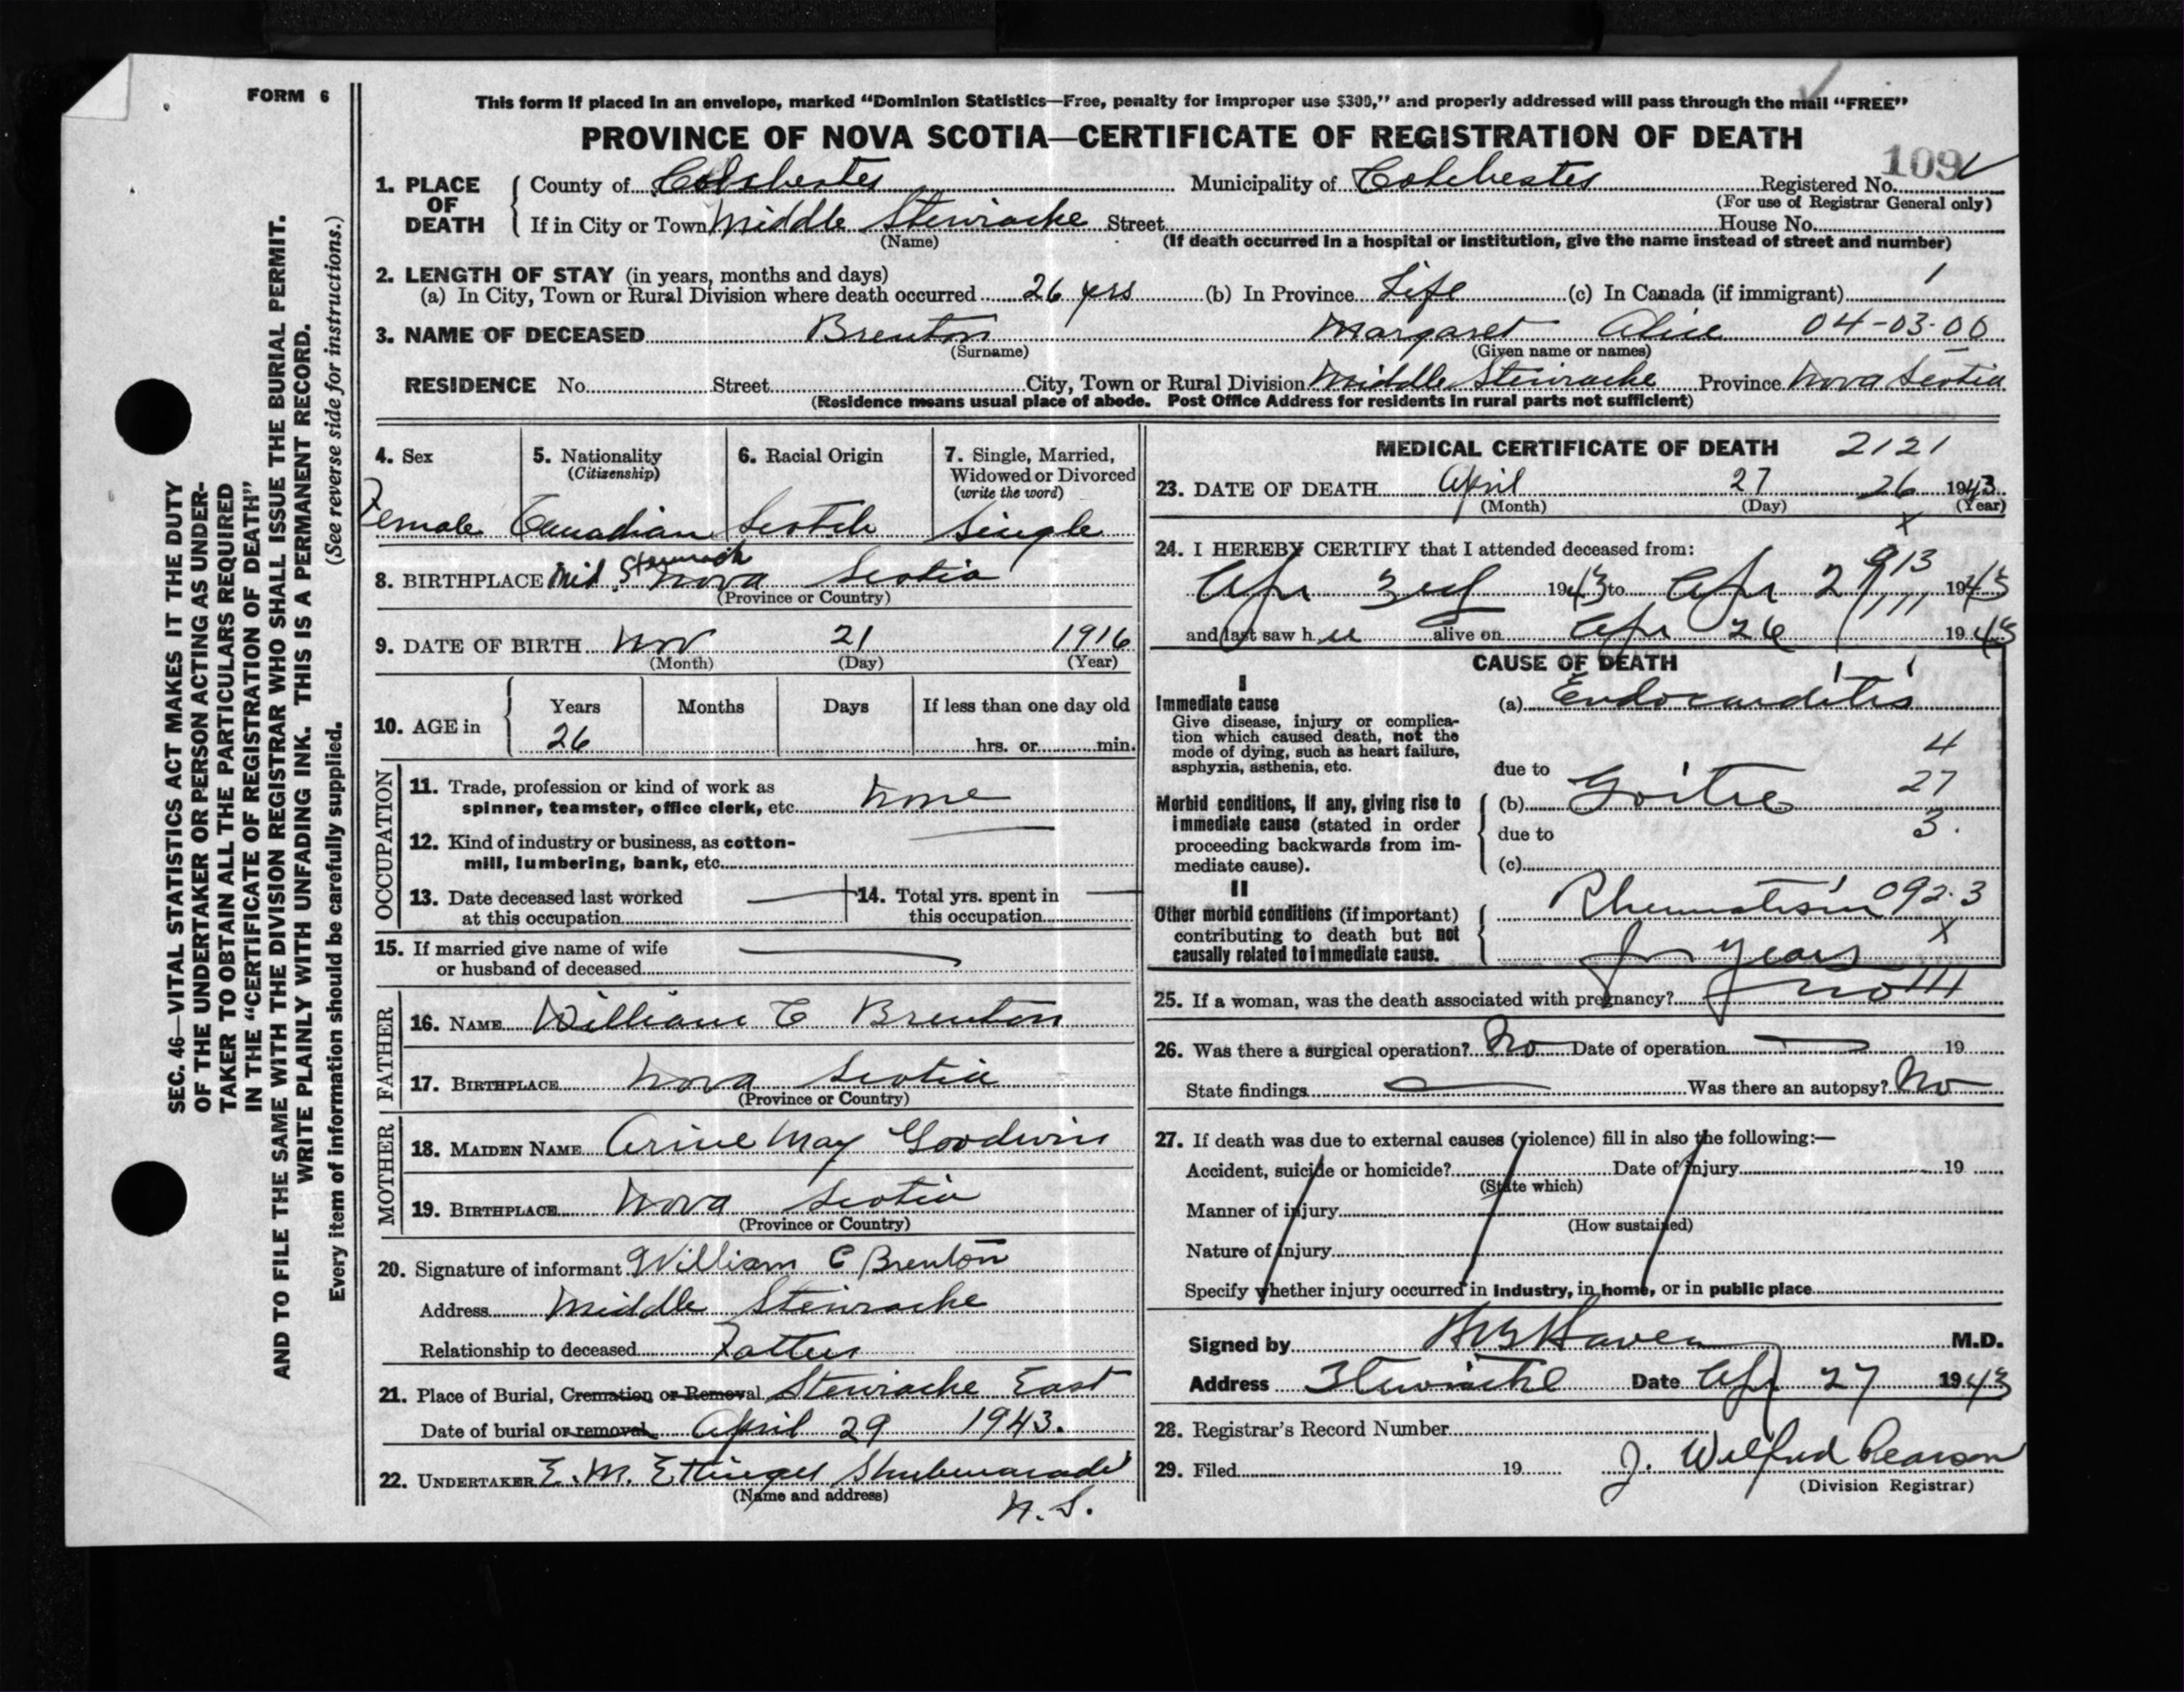 FORM 6
This form if placed in an envelope, marked “Dominion Statistics—Free, penalty for improper use $300,” and properly addressed will pass through the mail “FREE”
PROVINCE OF NOVA SCOTIA—CERTIFICATE OF REGISTRATION OF DEATH
109
1. PLACE OF DEATH County of Colchester Municipality of Colchester Registered No.
(For use of Registrar General only)
If in City or Town Middle Stewiacke Street House No.
(Name) (If death occurred in a hospital or institution, give the name instead of street and number)
2. LENGTH OF STAY (in years, months and days)
(a) In City, Town or Rural Division where death occurred 26 yrs (b) In Province Life (c) In Canada (if immigrant)
3. NAME OF DECEASED Brenton Margaret Alice 04-03-00
(Surname) (Given name or names)
RESIDENCE No. Street City, Town or Rural Division Middle Stewiacke Province Nova Scotia
(Residence means usual place of abode. Post Office Address for residents in rural parts not sufficient)
4. Sex 5. Nationality (Citizenship) 6. Racial Origin 7. Single, Married, Widowed or Divorced (write the word)
Female Canadian Scotch Single
8. BIRTHPLACE Mid Stewiack Nova Scotia
(Province or Country)
9. DATE OF BIRTH Nov 21 1916
(Month) (Day) (Year)
10. AGE in Years Months Days If less than one day old
26 hrs. or min.
OCCUPATION
11. Trade, profession or kind of work as
spinner, teamster, office clerk, etc. None
12. Kind of industry or business, as cotton-
mill, lumbering, bank, etc.
13. Date deceased last worked 14. Total yrs. spent in
at this occupation this occupation
15. If married give name of wife
or husband of deceased
FATHER
16. NAME William C Brenton
17. BIRTHPLACE Nova Scotia
(Province or Country)
MOTHER
18. MAIDEN NAME May Goodwin
19. BIRTHPLACE Nova Scotia
(Province or Country)
20. Signature of informant William C Brenton
Address Middle Stewiacke
Relationship to deceased Father
21. Place of Burial, Cremation or Removal Stewiacke East
Date of burial or removal April 29 1943.
22. UNDERTAKER E. M. Ettinger Shubenacadie
(Name and address)
N. S.
MEDICAL CERTIFICATE OF DEATH 2121
23. DATE OF DEATH April 27 26 1943
(Month) (Day) (Year)
x
24. I HEREBY CERTIFY that I attended deceased from:
913
Apr 3rd 1943 to Apr 27 1943
and last saw her alive on Apr 26 1943
CAUSE OF DEATH
I
Immediate cause (a) Endocarditis
Give disease, injury or complica-
tion which caused death, not the
mode of dying, such as heart failure,
asphyxia, asthenia, etc.
4
due to
27
Morbid conditions, if any, giving rise to (b) Goitre
immediate cause (stated in order
proceeding backwards from im-
mediate cause).
due to 3.
(c)
II
Rheumatism 092.3
Other morbid conditions (if important)
contributing to death but not
causally related to immediate cause.
x
for years
25. If a woman, was the death associated with pregnancy? no
26. Was there a surgical operation? No Date of operation 19
State findings Was there an autopsy? No
27. If death was due to external causes (violence) fill in also the following:—
Accident, suicide or homicide? Date of injury 19
(State which)
Manner of injury
(How sustained)
Nature of injury
Specify whether injury occurred in industry, in home, or in public place
Signed by Haven M.D.
Address Stewiacke Date Apr 27 1943
28. Registrar's Record Number
29. Filed 19 J. Wilfred Pearson
(Division Registrar)
SEC. 46—VITAL STATISTICS ACT MAKES IT THE DUTY
OF THE UNDERTAKER OR PERSON ACTING AS UNDER-
TAKER TO OBTAIN ALL THE PARTICULARS REQUIRED
IN THE “CERTIFICATE OF REGISTRATION OF DEATH”
AND TO FILE THE SAME WITH THE DIVISION REGISTRAR WHO SHALL ISSUE THE BURIAL PERMIT.
WRITE PLAINLY WITH UNFADING INK. THIS IS A PERMANENT RECORD.
Every item of information should be carefully supplied. (See reverse side for instructions.)